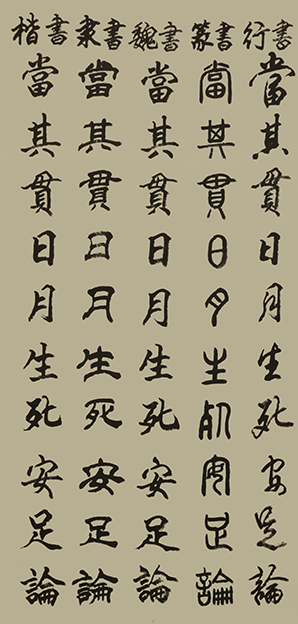 楷書 隶書 魏書 篆書 行書
當其貫日月生死安足論
當其貫日月生死安足論
當其貫日月生死安足論
當其貫日月生死安足論
當其貫日月生死安足論